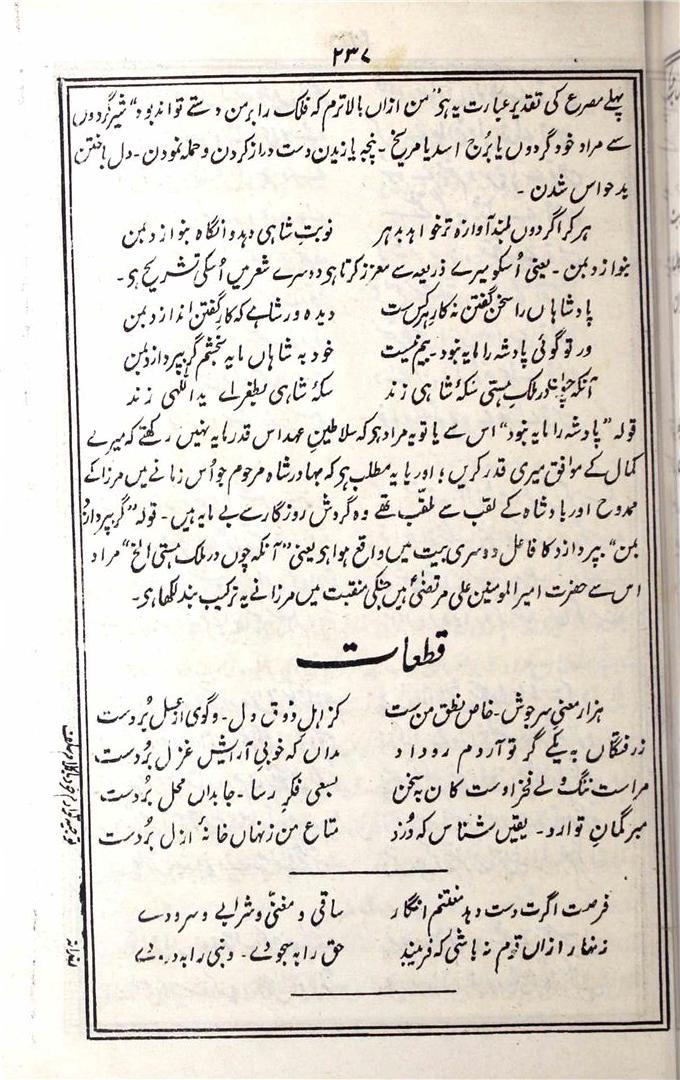 ۲۳۷
پہلے مصرع کی تقدیر عبارت یہ ہی "من ازاں بالاترم کہ فلک را بر من دستے تواند بود" شیر گردوں
سے مراد خود گردوں یا بُرج اسد یا مریخ ۔ پنجہ یازیدن دست دراز کردن و حملہ نمودن ۔ دل باختن
بد حواس شدن ۔
ہر کرا گردوں بلند آوازہ تر خواہد بدہر
نوبتِ شاہی دہد وانگاہ بنوازد بمن
بنوازد بمن ۔ یعنی اُسکو میرے ذریعہ سے معزز کرتا ہی دوسرے شعر میں اُسکی تشریح ہی ۔
پادشاہاں را سخن گفتن نہ کار ہر کس ست
دیدہ ور شاہے کہ کارِ گفتن اندازد بمن
ور تو گوئی پادشہ را مایہ نبود ۔ بیم نیست
خود بہ شاہاں مایہ بخشم گر بپردازد بمن
آنکہ چوں در ملک ہستی سکۂ شاہی زند
سکۂ شاہی بطغرائے ید اللہی زند
قولہ "پادشہ را مایہ نبود" اس سے یا تو یہ مراد ہی کہ سلاطینِ عہد اس قدر مایہ نہیں رکھتے کہ میرے
کمال کے موافق میری قدر کریں؛ اور یا یہ مطلب ہی کہ بہادر شاہ مرحوم جو اُس زمانے میں مرزا کے
ممدوح اور بادشاہ کے لقب سے ملقّب تھے وہ گردش روزگار سے بے مایہ ہیں ۔ قولہ "گر بپردازد
بمن" بپردازد کا فاعل دوسری بیت میں واقع ہوا ہی یعنی "آنکہ چوں در ملک ہستی الخ" مراد
اس سے حضرت امیر المومنین علی مرتضیٰؑ ہیں جنکی منقبت میں مرزا نے یہ ترکیب بند لکھا ہی ۔
قطعات
ہزار معنیِ سرجوش ۔ خاص نطق من ست
کز اہلِ ذوق دل ۔ وگوی از عسل بُردست
ز رفتگاں بہ یکے گر تواردم رو داد
مداں کہ خوبی آرایش غزل بُردست
مراست ننگ ولے فخر اوست کاں بہ سخن
بسعی فکرِ رسا ۔ جا بداں محل بُردست
مبر گمانِ توارد ۔ یقیں شناس کہ دُزد
متاعِ من ز نہاں خانۂ ازل بُردست
فرصت اگرت دست دہد مغتنم انگار
ساقی و مغنّی و شرابے و سرودے
زنہار ازاں قوم نہ باشی کہ فریبند
حق را بہ سجودے ۔ و نبی را بہ درودے